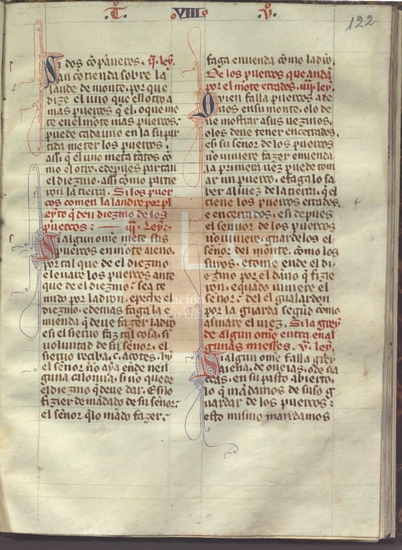 T. VIII V.
122
Si dos conpañeros. ij. ley.
an contienda sobre la
lande de monte. por que
dize el uno que el otro a
mas puercos que el. o que me
te en el monte mas puercos.
puede cada uno en la su par
tida meter los puercos.
assi que el uno meta tantos co
mo el otro. e depues partan
el diezmo. assi como partie
ron la tierra. Si los puer
cos comen la lande por pl
eyto que den diezmo de los
puercos. iij. Ley.
Si algun ome mete sus
puercos en monte aieno.
por tal que de el diezmo. e
el levare los puercos ante
que de el diezmo. sea te
nudo por ladron. e peche el
diezmo. e demas faga la e
mienda que deve fazer ladron
e si el siervo faz tal cosa. sin
voluntad de su señor. el
siervo reciba. c. acotes. hy
el señor no aya ende nen
guna calonna. si no quede
el diezmo que deve dar. E si lo
fazier de mandado de su señor.
el señor que lo mando fazer.
faga enmienda como ladron.
De los puercos que andan
por el monte errados. iiij. ley
Quien falla puercos a ie
nos en su monte. o lo de
ve mostrar a sus vezinos.
o los deve tener encerrados.
e si su señor de los puercos
no viniere fazer emienda.
la primera vez puede tom
ar un puerco. e fagalo sa
ber al iuez de la tierra. que el
tiene los puercos errados.
e encerrados. e si depues
el señor de los puercos
no viniere. guardelos el
señor del monte. como los
suyos. e tome ende el di
ezmo por el danno que fizie
ron. e quando viniere el
señor. del el gualardon
por la guarda segund como
asmare el iuez. Si la grey
de algun ome entra en al
gunas miesses. v. ley.
Si algun ome falla grey
aiena. de oveias. o de va
cas. en su pasto abierto.
lo que mandamos de suso g
uardar de los puercos.
esto mismo mandamos